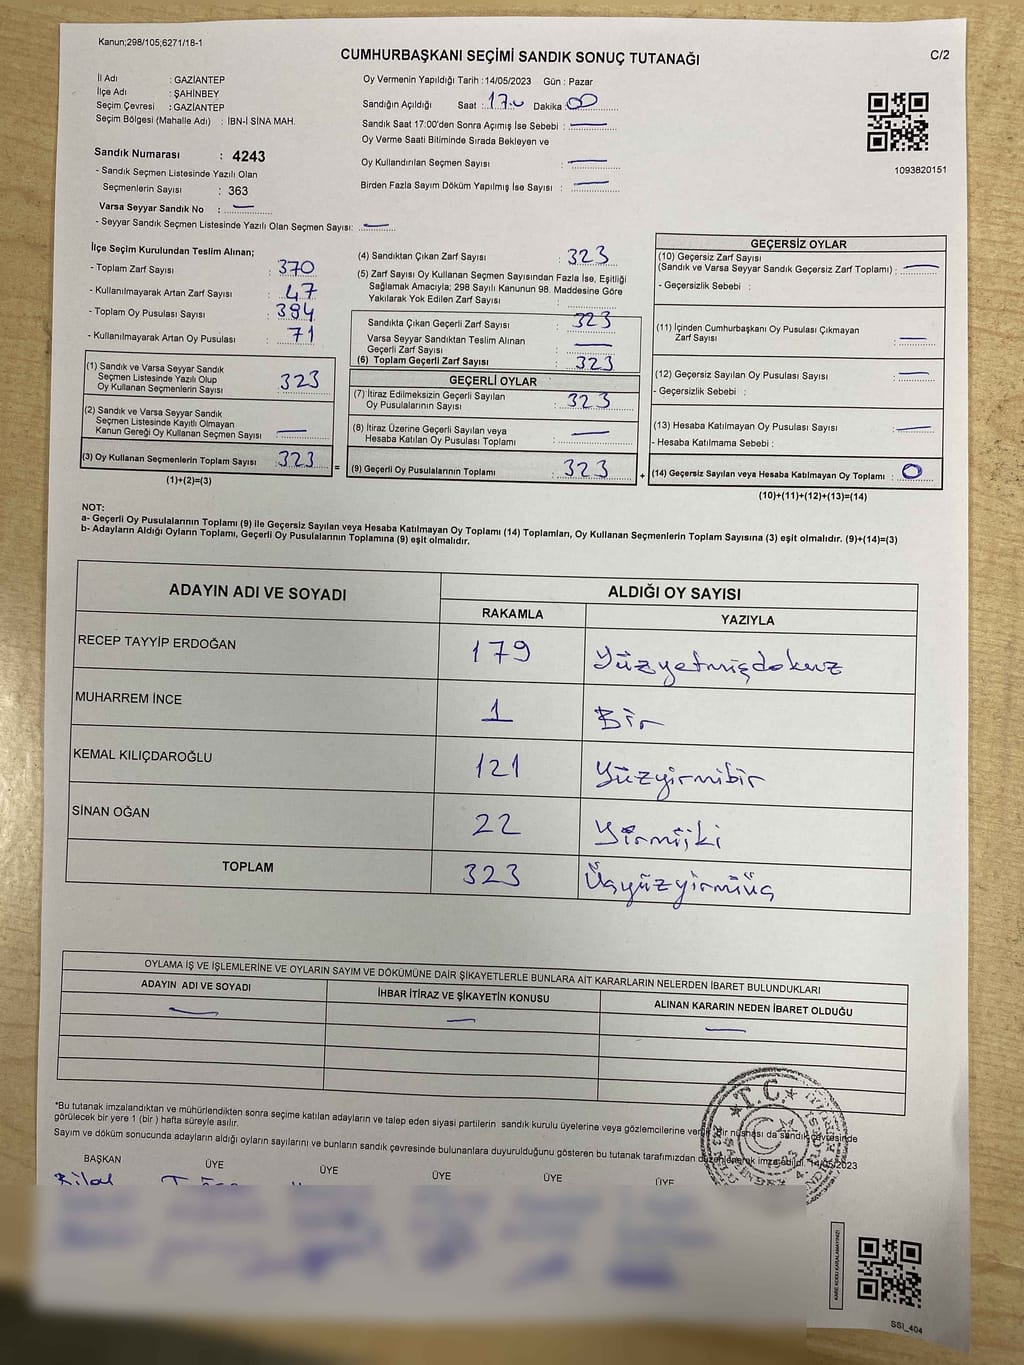 Kanun;298/105;6271/18-1
CUMHURBAŞKANI SEÇİMİ SANDIK SONUÇ TUTANAĞI
C/2
İl Adı : GAZİANTEP
İlçe Adı : ŞAHİNBEY
Seçim Çevresi : GAZİANTEP
Seçim Bölgesi (Mahalle Adı) : İBN-İ SİNA MAH.
Oy Vermenin Yapıldığı Tarih : 14/05/2023 Gün : Pazar
Sandığın Açıldığı Saat : 17.00 Dakika : 00
Sandık Saat 17:00'den Sonra Açımış İse Sebebi : —
Oy Verme Saati Bitiminde Sırada Bekleyen ve
Oy Kullandırılan Seçmen Sayısı : —
Birden Fazla Sayım Döküm Yapılmış İse Sayısı : —
1093820151
Sandık Numarası : 4243
- Sandık Seçmen Listesinde Yazılı Olan
Seçmenlerin Sayısı : 363
Varsa Seyyar Sandık No : —
- Seyyar Sandık Seçmen Listesinde Yazılı Olan Seçmen Sayısı: —
İlçe Seçim Kurulundan Teslim Alınan;
- Toplam Zarf Sayısı : 370
- Kullanılmayarak Artan Zarf Sayısı : 47
- Toplam Oy Pusulası Sayısı : 394
- Kullanılmayarak Artan Oy Pusulası : 71
(1) Sandık ve Varsa Seyyar Sandık
Seçmen Listesinde Yazılı Olup
Oy Kullanan Seçmenlerin Sayısı : 323
(2) Sandık ve Varsa Seyyar Sandık
Seçmen Listesinde Kayıtlı Olmayan
Kanun Gereği Oy Kullanan Seçmen Sayısı : —
(3) Oy Kullanan Seçmenlerin Toplam Sayısı : 323
(1)+(2)=(3)
=
(4) Sandıktan Çıkan Zarf Sayısı : 323
(5) Zarf Sayısı Oy Kullanan Seçmen Sayısından Fazla İse, Eşitliği
Sağlamak Amacıyla; 298 Sayılı Kanunun 98. Maddesine Göre
Yakılarak Yok Edilen Zarf Sayısı :
Sandıkta Çıkan Geçerli Zarf Sayısı : 323
Varsa Seyyar Sandıktan Teslim Alınan
Geçerli Zarf Sayısı : —
(6) Toplam Geçerli Zarf Sayısı : 323
GEÇERLİ OYLAR
(7) İtiraz Edilmeksizin Geçerli Sayılan
Oy Pusulalarının Sayısı : 323
(8) İtiraz Üzerine Geçerli Sayılan veya
Hesaba Katılan Oy Pusulası Toplamı : —
(9) Geçerli Oy Pusulalarının Toplamı : 323
+
GEÇERSİZ OYLAR
(10) Geçersiz Zarf Sayısı
(Sandık ve Varsa Seyyar Sandık Geçersiz Zarf Toplamı) : —
- Geçersizlik Sebebi :
(11) İçinden Cumhurbaşkanı Oy Pusulası Çıkmayan
Zarf Sayısı : —
(12) Geçersiz Sayılan Oy Pusulası Sayısı : —
- Geçersizlik Sebebi :
(13) Hesaba Katılmayan Oy Pusulası Sayısı : —
- Hesaba Katılmama Sebebi :
(14) Geçersiz Sayılan veya Hesaba Katılmayan Oy Toplamı : 0
(10)+(11)+(12)+(13)=(14)
NOT:
a- Geçerli Oy Pusulalarının Toplamı (9) ile Geçersiz Sayılan veya Hesaba Katılmayan Oy Toplamı (14) Toplamları, Oy Kullanan Seçmenlerin Toplam Sayısına (3) eşit olmalıdır. (9)+(14)=(3)
b- Adayların Aldığı Oyların Toplamı, Geçerli Oy Pusulalarının Toplamına (9) eşit olmalıdır.
ADAYIN ADI VE SOYADI ALDIĞI OY SAYISI
RAKAMLA YAZIYLA
RECEP TAYYİP ERDOĞAN 179 Yüzyetmişdokuz
MUHARREM İNCE 1 Bir
KEMAL KILIÇDAROĞLU 121 Yüzyirmibir
SİNAN OĞAN 22 Yirmiiki
TOPLAM 323 Üçyüzyirmiüç
OYLAMA İŞ VE İŞLEMLERİNE VE OYLARIN SAYIM VE DÖKÜMÜNE DAİR ŞİKAYETLERLE BUNLARA AİT KARARLARIN NELERDEN İBARET BULUNDUKLARI
ADAYIN ADI VE SOYADI İHBAR İTİRAZ VE ŞİKAYETİN KONUSU ALINAN KARARIN NEDEN İBARET OLDUĞU
— — —
*Bu tutanak imzalandıktan ve mühürlendikten sonra seçime katılan adayların ve talep eden siyasi partilerin sandık kurulu üyelerine veya gözlemcilerine verilir, bir nüshası da sandık çevresinde
görülecek bir yere 1 (bir ) hafta süreyle asılır.
Sayım ve döküm sonucunda adayların aldığı oyların sayılarını ve bunların sandık çevresinde bulunanlara duyurulduğunu gösteren bu tutanak tarafımızdan düzenlenerek imza edildi. 14/05/2023
T.C.
BAŞKAN ÜYE ÜYE ÜYE ÜYE ÜYE
Bilal
KARE KODU KARALAMAYINIZ!
SSI_404